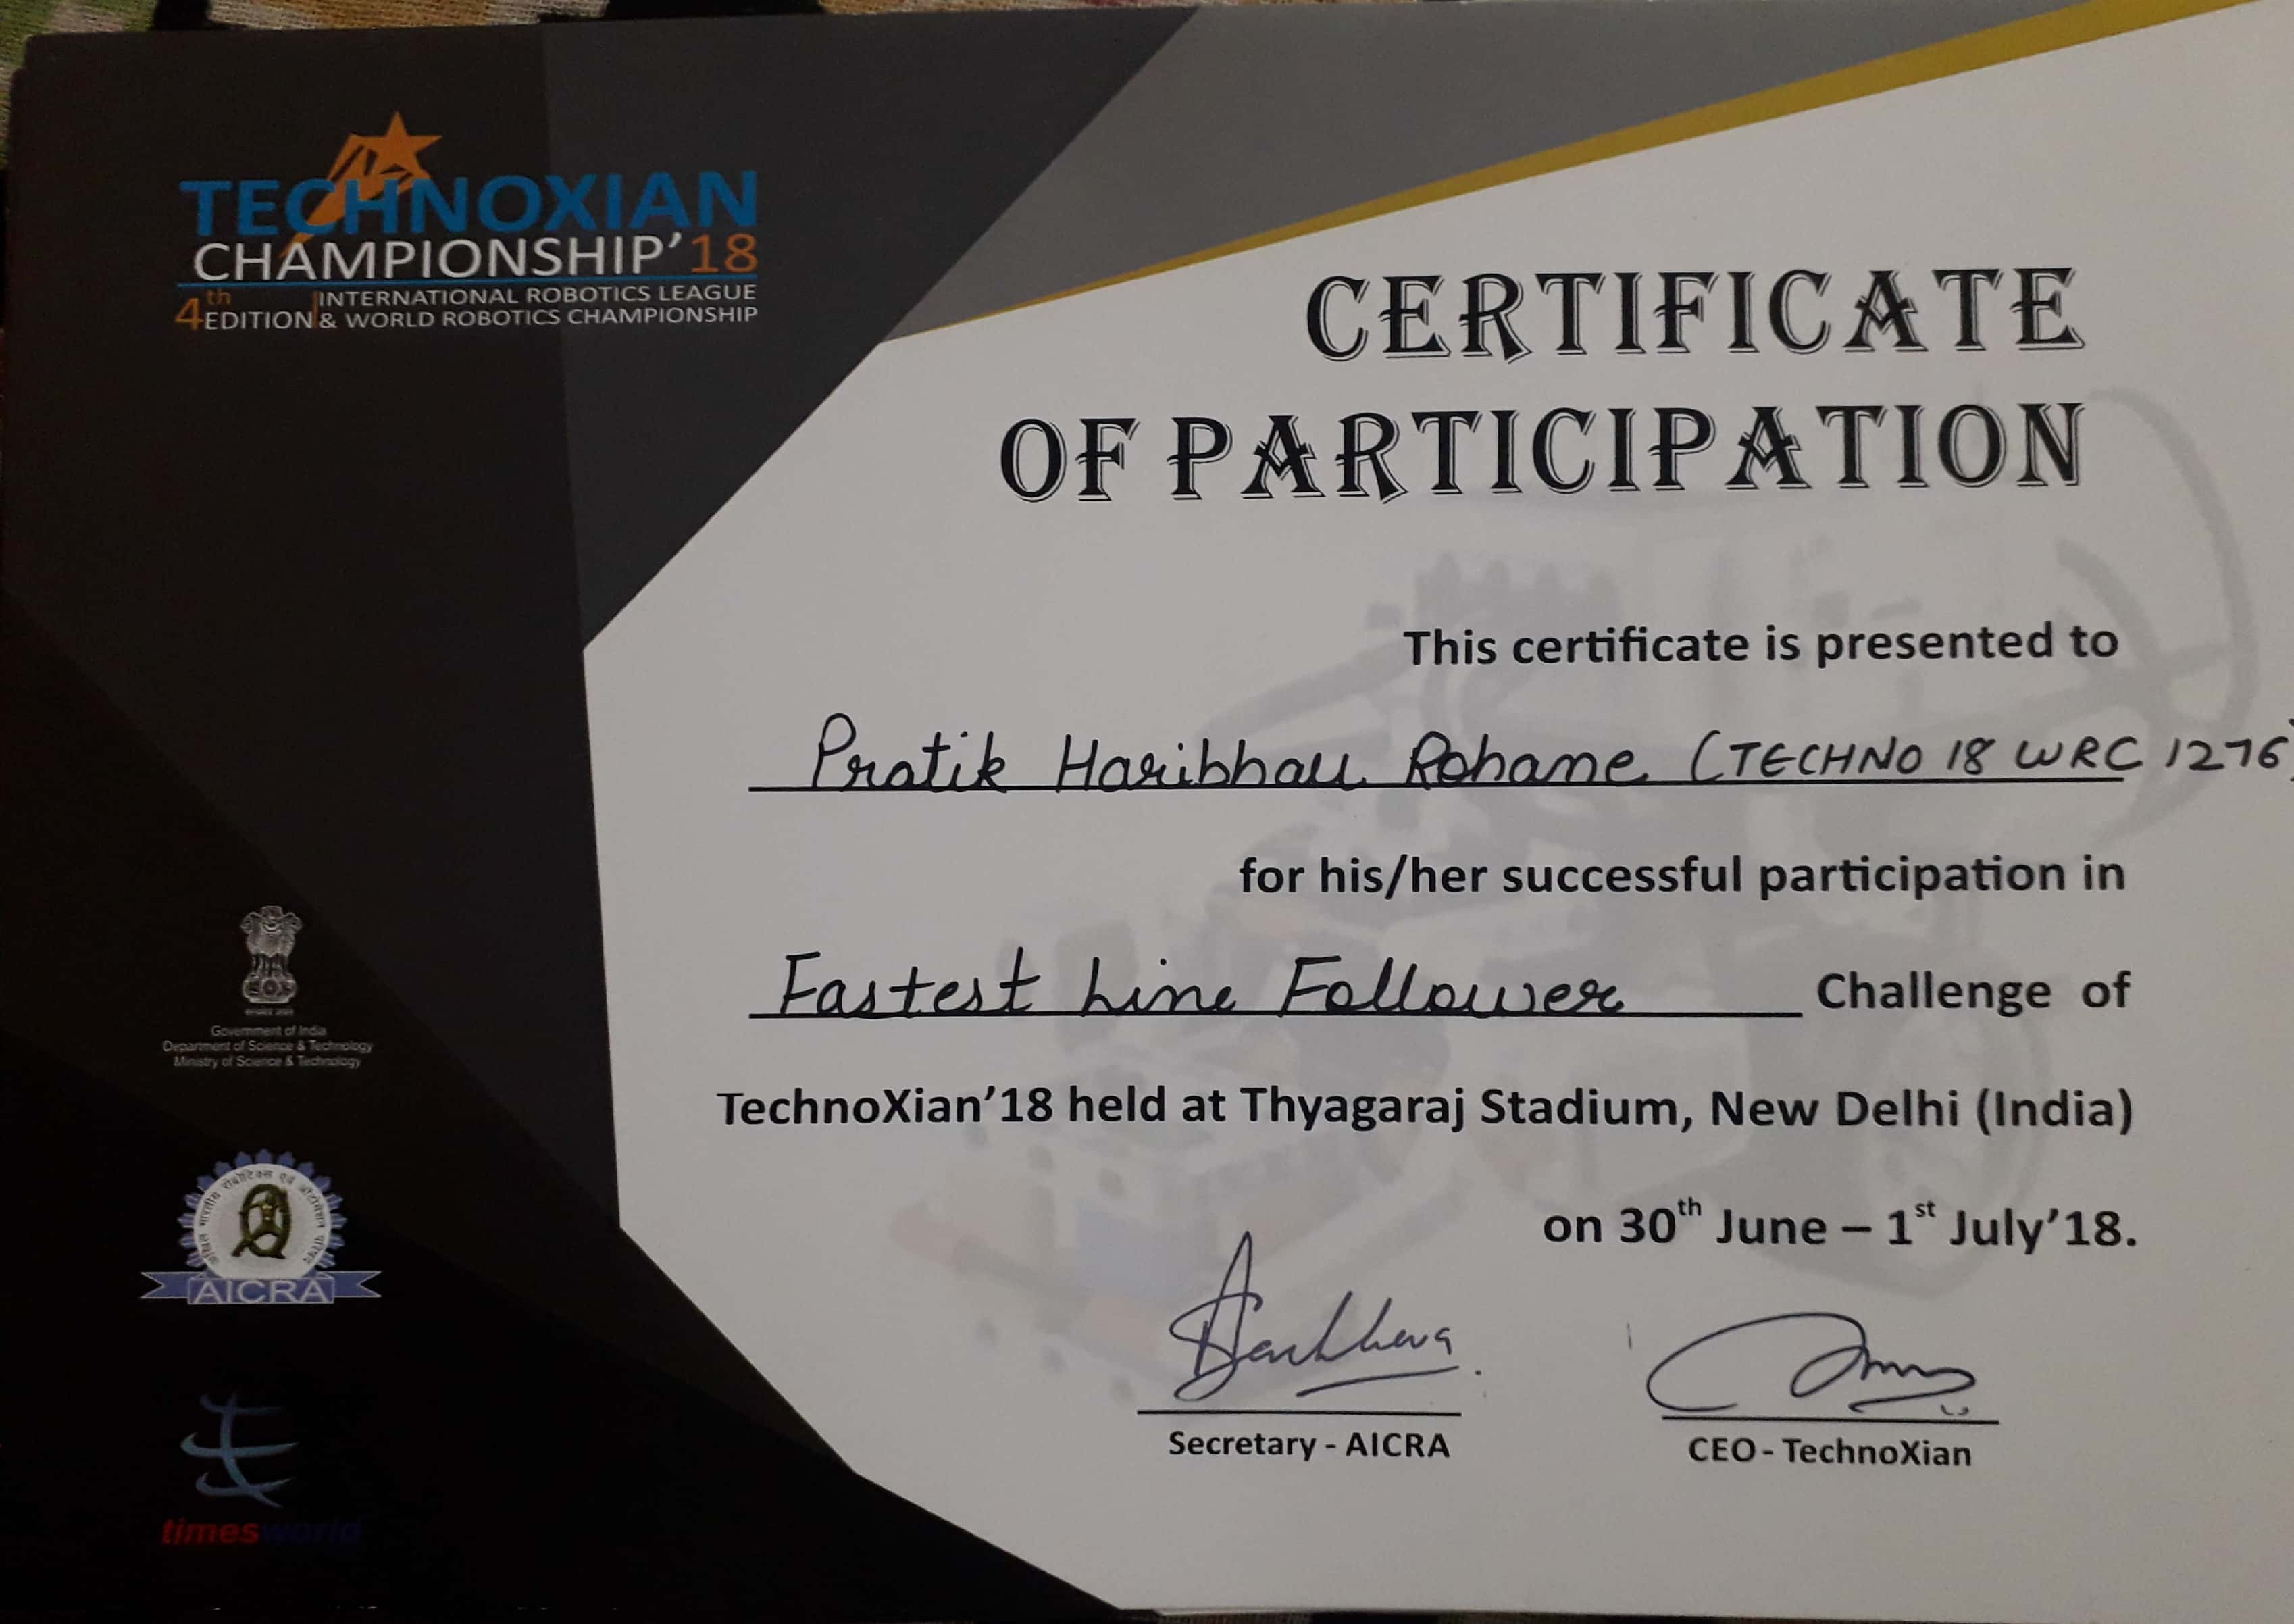 TECHNOXIAN
CHAMPIONSHIP'18
4th EDITION
INTERNATIONAL ROBOTICS LEAGUE
& WORLD ROBOTICS CHAMPIONSHIP
CERTIFICATE
OF PARTICIPATION
This certificate is presented to
Pratik Haribhau Rohane (TECHNO 18 WRC 1276)
for his/her successful participation in
Fastest Line Follower Challenge of
TechnoXian'18 held at Thyagaraj Stadium, New Delhi (India)
on 30th June – 1st July'18.
Secretary - AICRA
CEO - TechnoXian
Government of India
Department of Science & Technology
Ministry of Science & Technology
AICRA
timesworld